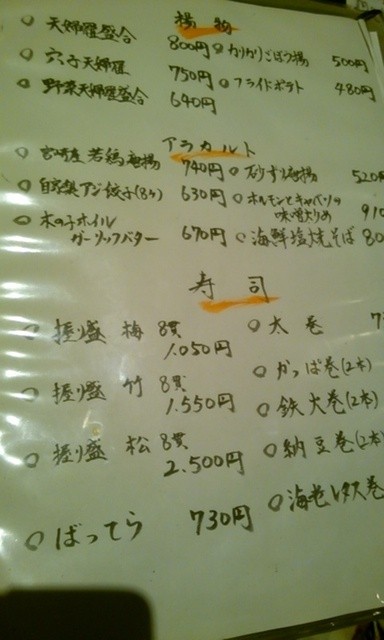 揚物
○天婦羅盛合 800円
○穴子天婦羅 750円
○野菜天婦羅盛合 640円
○カリカリごぼう揚 500円
○フライドポテト 480円
アラカルト
○宮崎産 若鶏唐揚 740円
○自家製アジ餃子(8ヶ) 630円
○木の子ホイル
ガーリックバター 670円
○砂ずり唐揚 520円
○ホルモンとキャベツの
味噌炒め 910
○海鮮塩焼そば 80
寿司
○握り盛 梅 8貫
1.050円
○握り盛 竹 8貫
1.550円
○握り盛 松 8貫
2.500円
○ばってら 730円
○太巻 7
○かっぱ巻(2本)
○鉄火巻(2本)
○納豆巻(2本)
○海老レタス巻